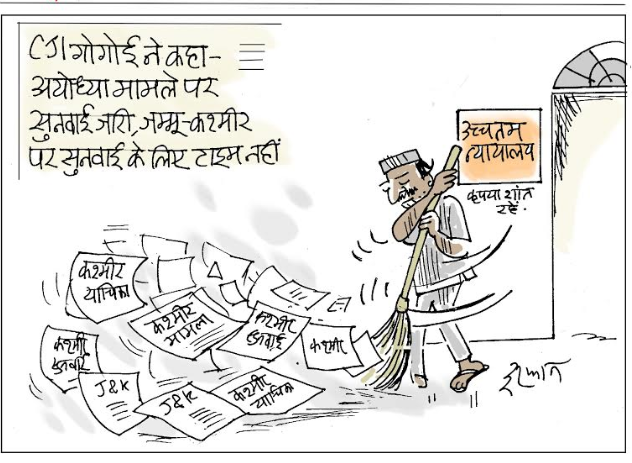 CJI गोगोई ने कहा-
अयोध्या मामले पर
सुनवाई जारी, जम्मू-कश्मीर
पर सुनवाई के लिए टाइम नहीं
उच्चतम
न्यायालय
कृपया शांत
रहें.
कश्मीर
याचिका
कश्मीर
मामला
कश्मीर
सुनवाई
कश्मीर
कश्मीर
सुनवाई
J&K
J&K
कश्मीर
याचिका
इरफान